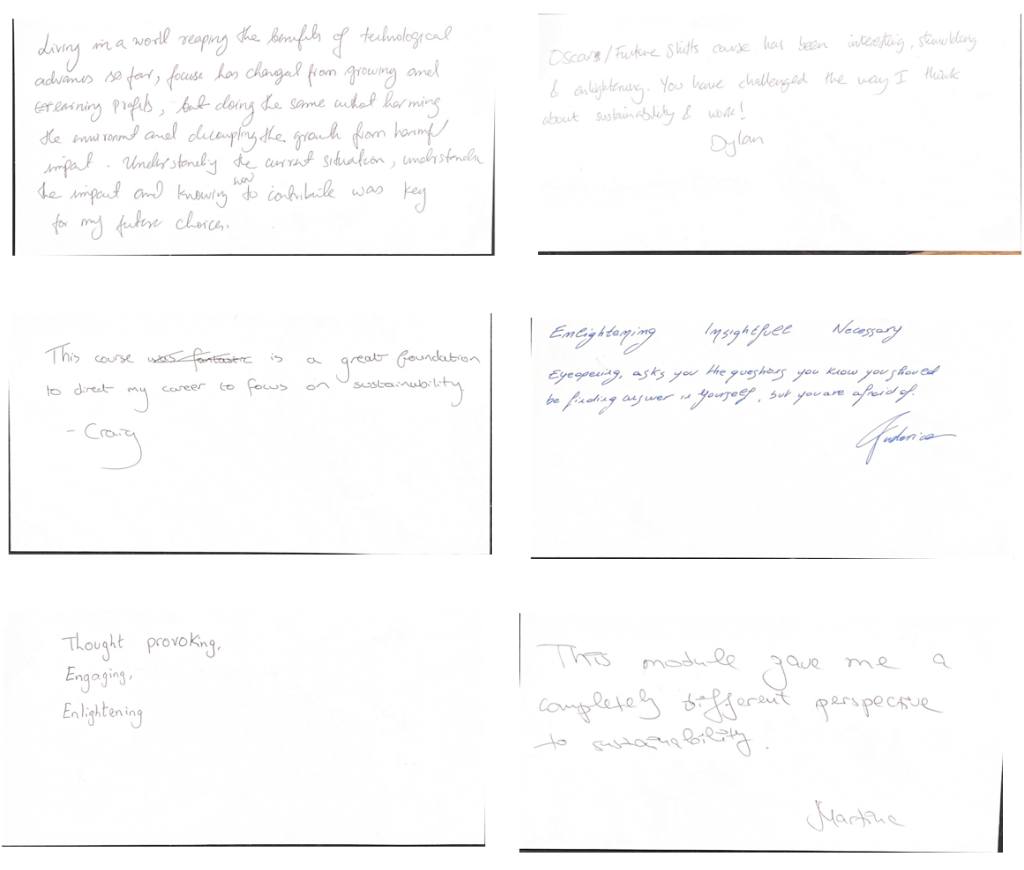 Living in a world reaping the benefits of technological
advances so far, focuse has changed from growing and
earning profits, but doing the same what harming
the environment and decoupling the growth from harmful
impact. Understanding the current situation, understanding
the impact and knowing how to contribute was key
for my future choices.
Oscars/Future Shifts course has been interesting,
& enlightening. You have challenged the way I think
about sustainability & work!
Dylan
This course was fantastic is a great foundation
to direct my career to focus on sustainability
- Craig
Enlightening Insightfull Necessary
Eyeopening, asks you the questions you know you should
be finding answer in yourself, but you are afraid of.
Thought provoking,
Engaging,
Enlightening
This module gave me a
completely different perspective
to sustainability.
Martina